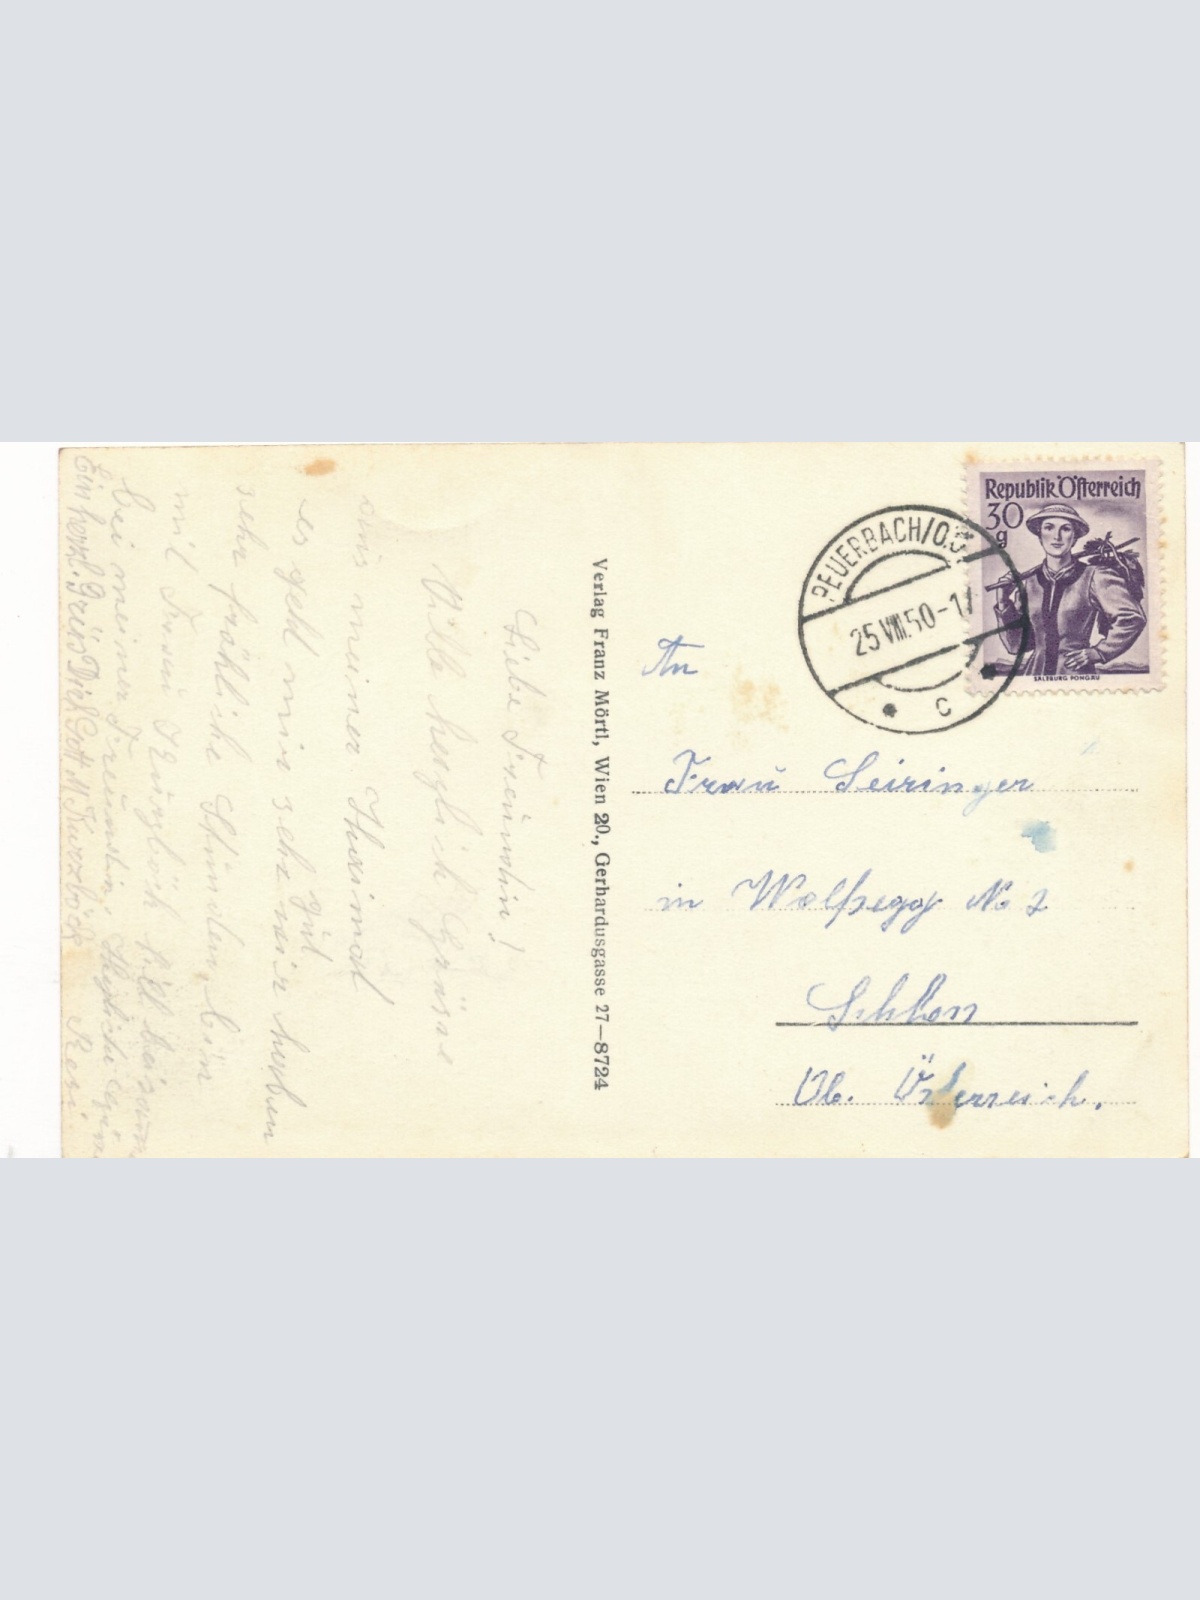 Liebe Freundin!
Viele herzlich Grüsse
aus meiner Haimat
es geht mir sehr gut
wir haben
sehr fröhliche Stunden bin
mit Frau Kurzböck
bei meiner Freundin.
Ein herzl. Grüß Dich Gott M. Kurzböck
Resi
Verlag Franz Mörtl, Wien 20., Gerhardusgasse 27—8724
Republik Österreich
30
g
SALZBURG PONGAU
PEUERBACH/O.Ö.
25.VIII.50-17
c
An
Frau Seiringer
in Wolfsegg No 2
Schloss
Ob. Österreich.